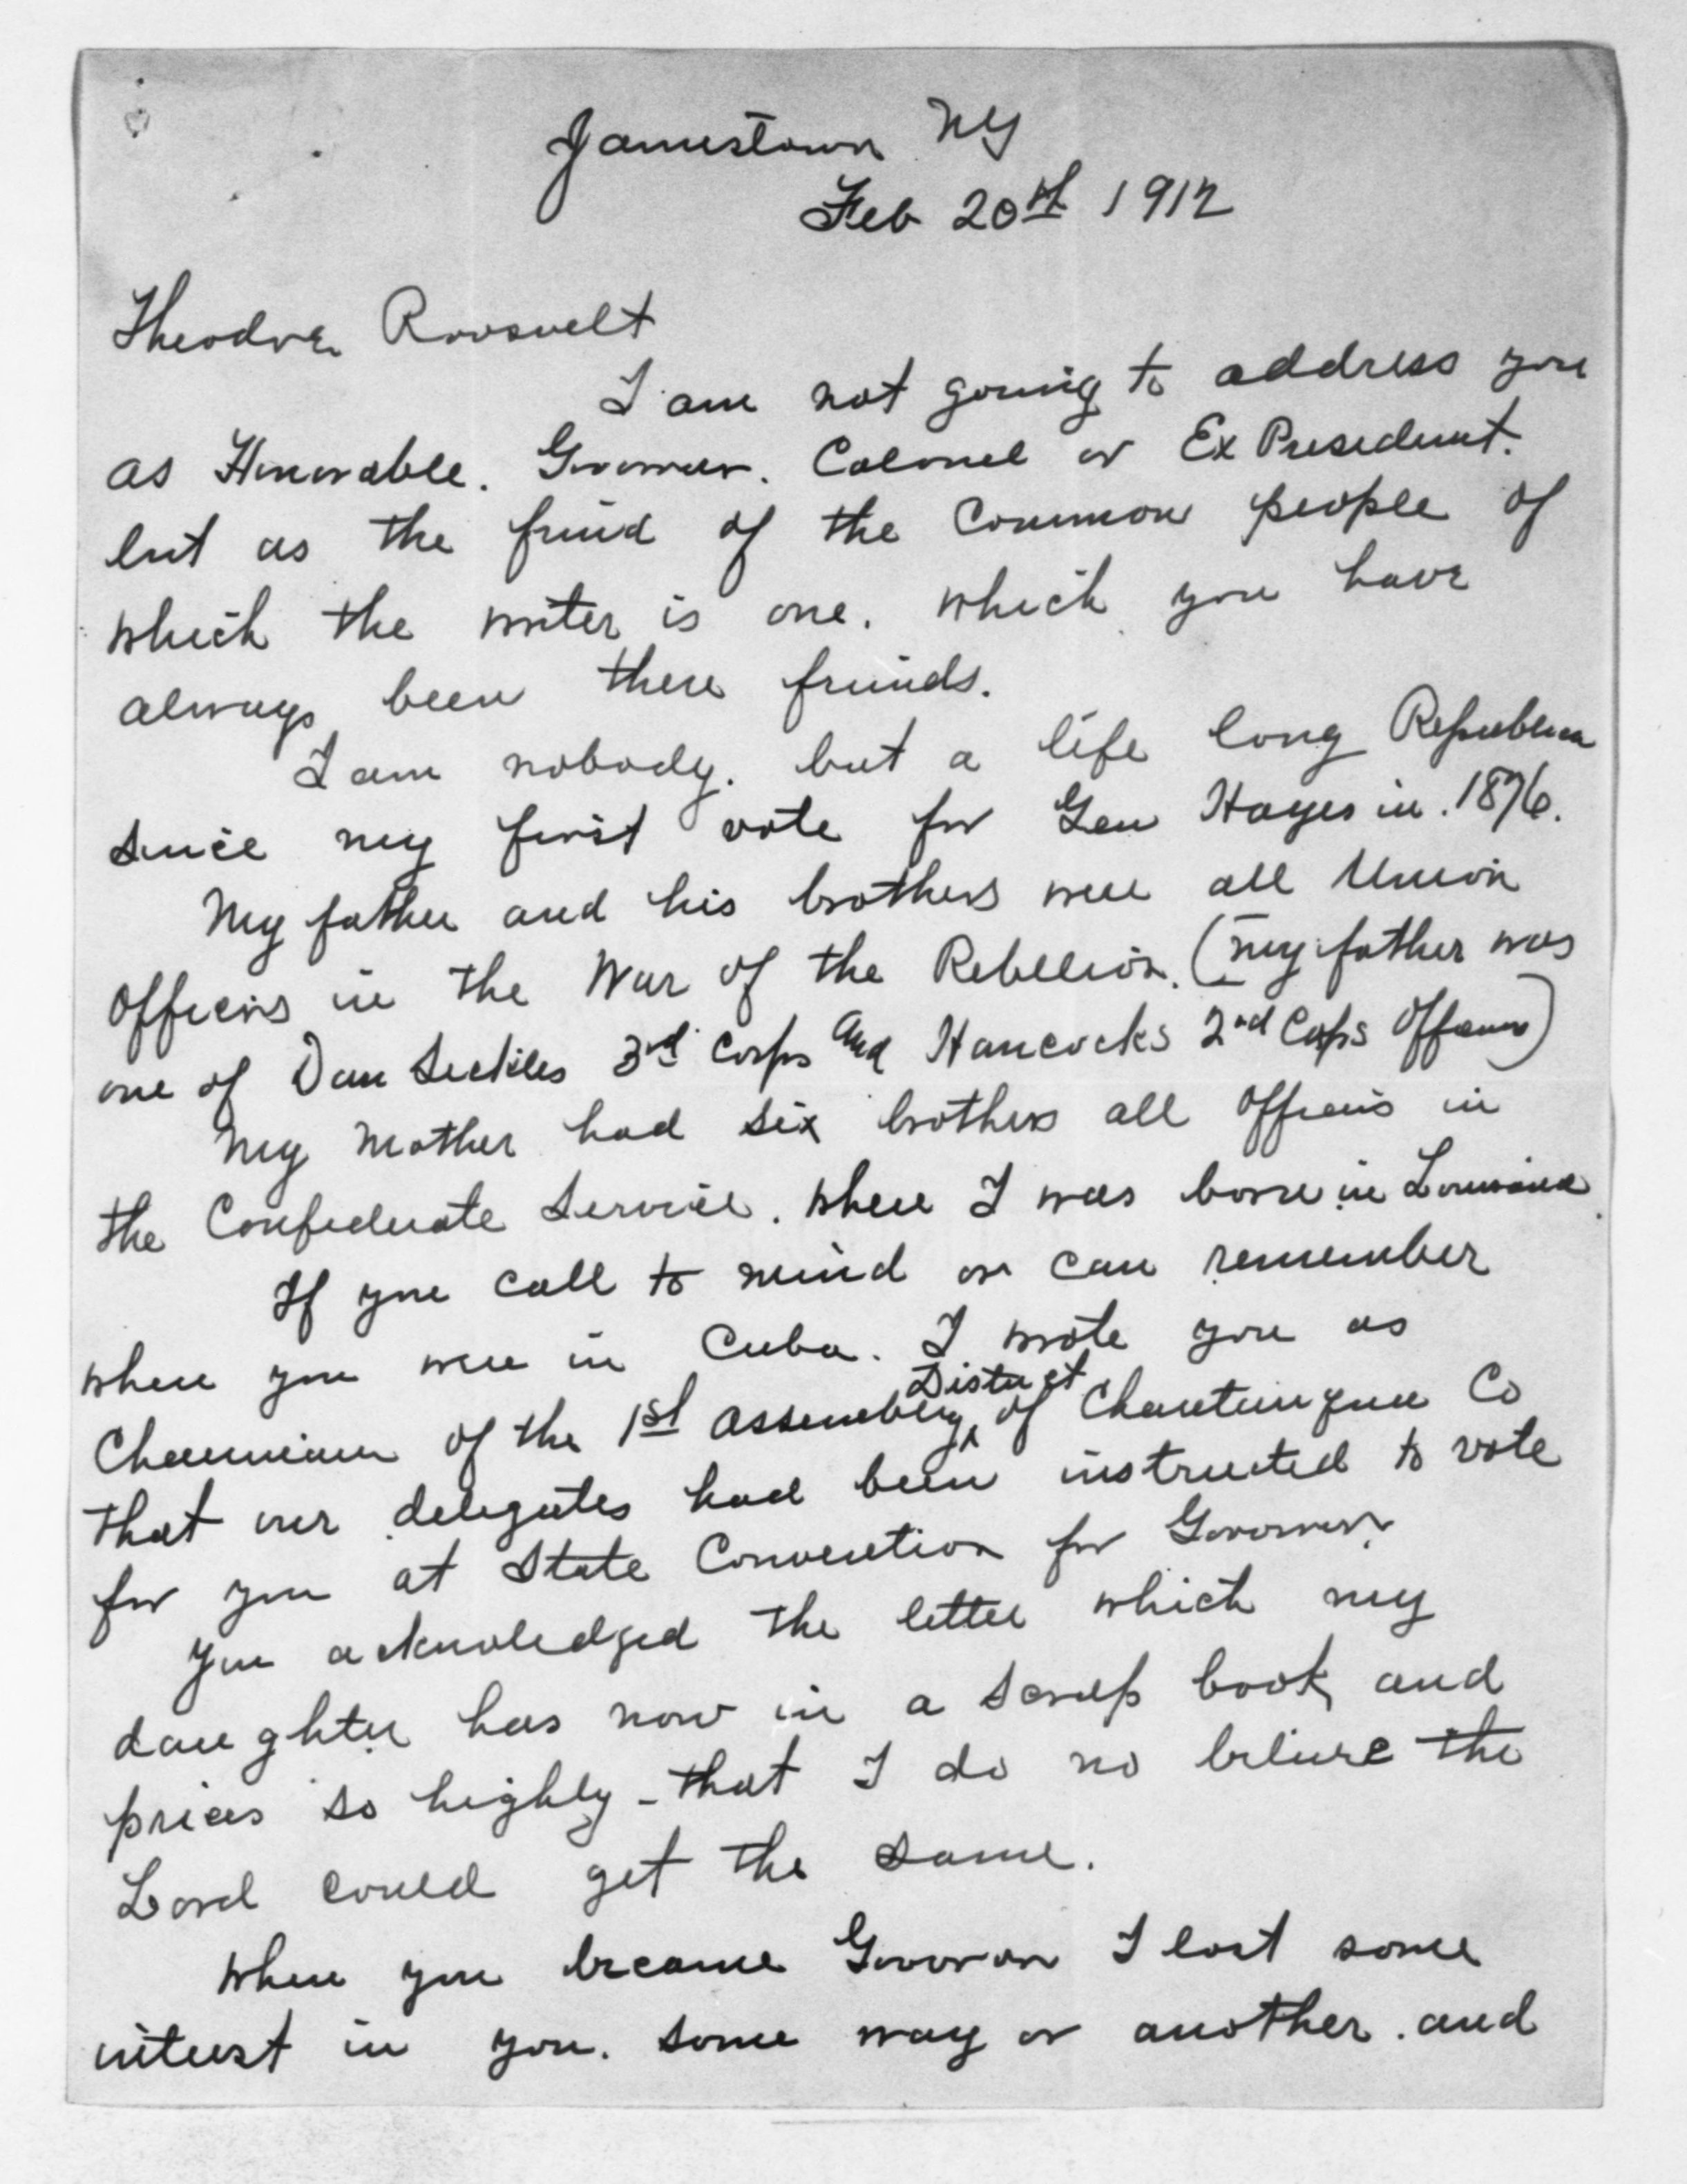 Jamestown NY
Feb 20th 1912
Theodore Roosvelt
I am not going to address you
as Honorable. Governer. Colonel or Ex President.
but as the friend of the Common people of
which the writer is one. which you have
always been there friends.
I am nobody. but a life long Republican
since my first vote for Gen Hayes in. 1876.
My father and his brothers were all Union
Officers in the War of the Rebellion. (my father was
one of Dan Sickles 3rd Corps and Hancocks 2nd Corps Officers)
My Mother had six brothers all Officers in
the Confederate Service. where I was borne in Louisiana
If you call to mind or can remember
when you were in Cuba. I wrote you as
Chairman of the 1st Assembly District of Chautauqua Co
that our delegates had been instructed to vote
for you at State Convention for Governor.
You acknowledged the letter which my
daughter has now in a scrap book and
prices so highly - that I do no believe the
Lord could get the same.
When you became Governor I lost some
interest in you. some way or another. and